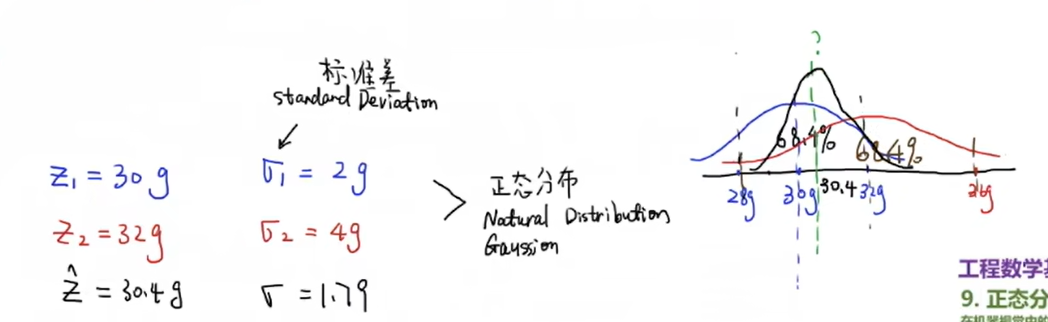 标准差
Standard Deviation
z₁ = 30g
σ₁ = 2g
z₂ = 32g
σ₂ = 4g
ẑ = 30.4g
σ = 1.79
正态分布
Natural Distribution
Gaussion
?
68.4%
68.4%
28g
30g
30.4
32g
36g
工程数学基
9. 正态分